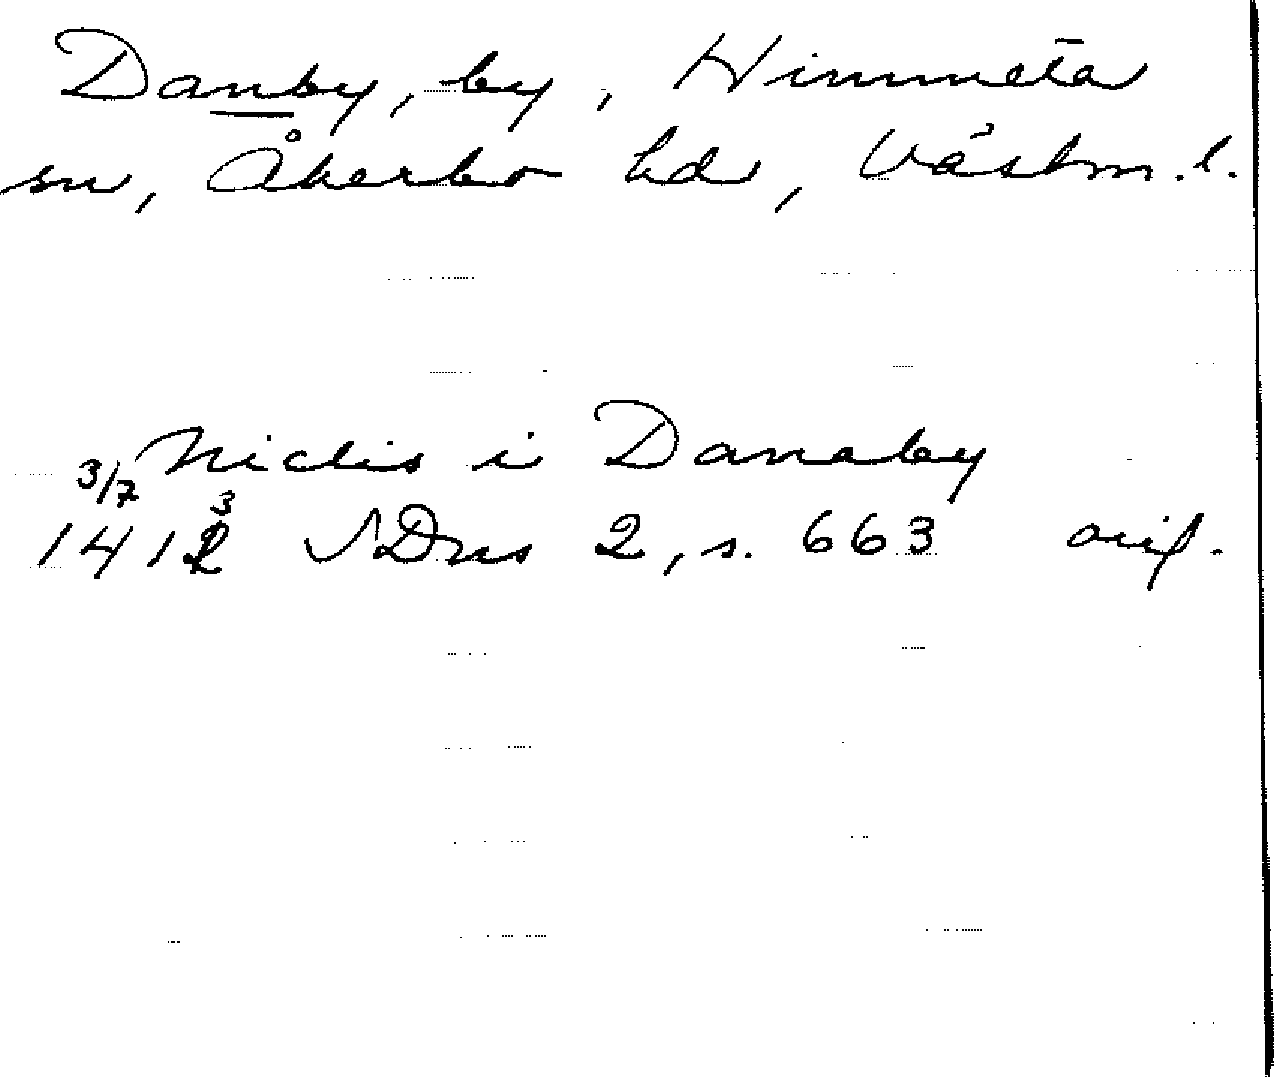 Danby, by, Himmeta
sn, Åkerbo hd, Västm. l.
Niclis i Danaby
3/7
1413 SDns 2, s. 663 orig.